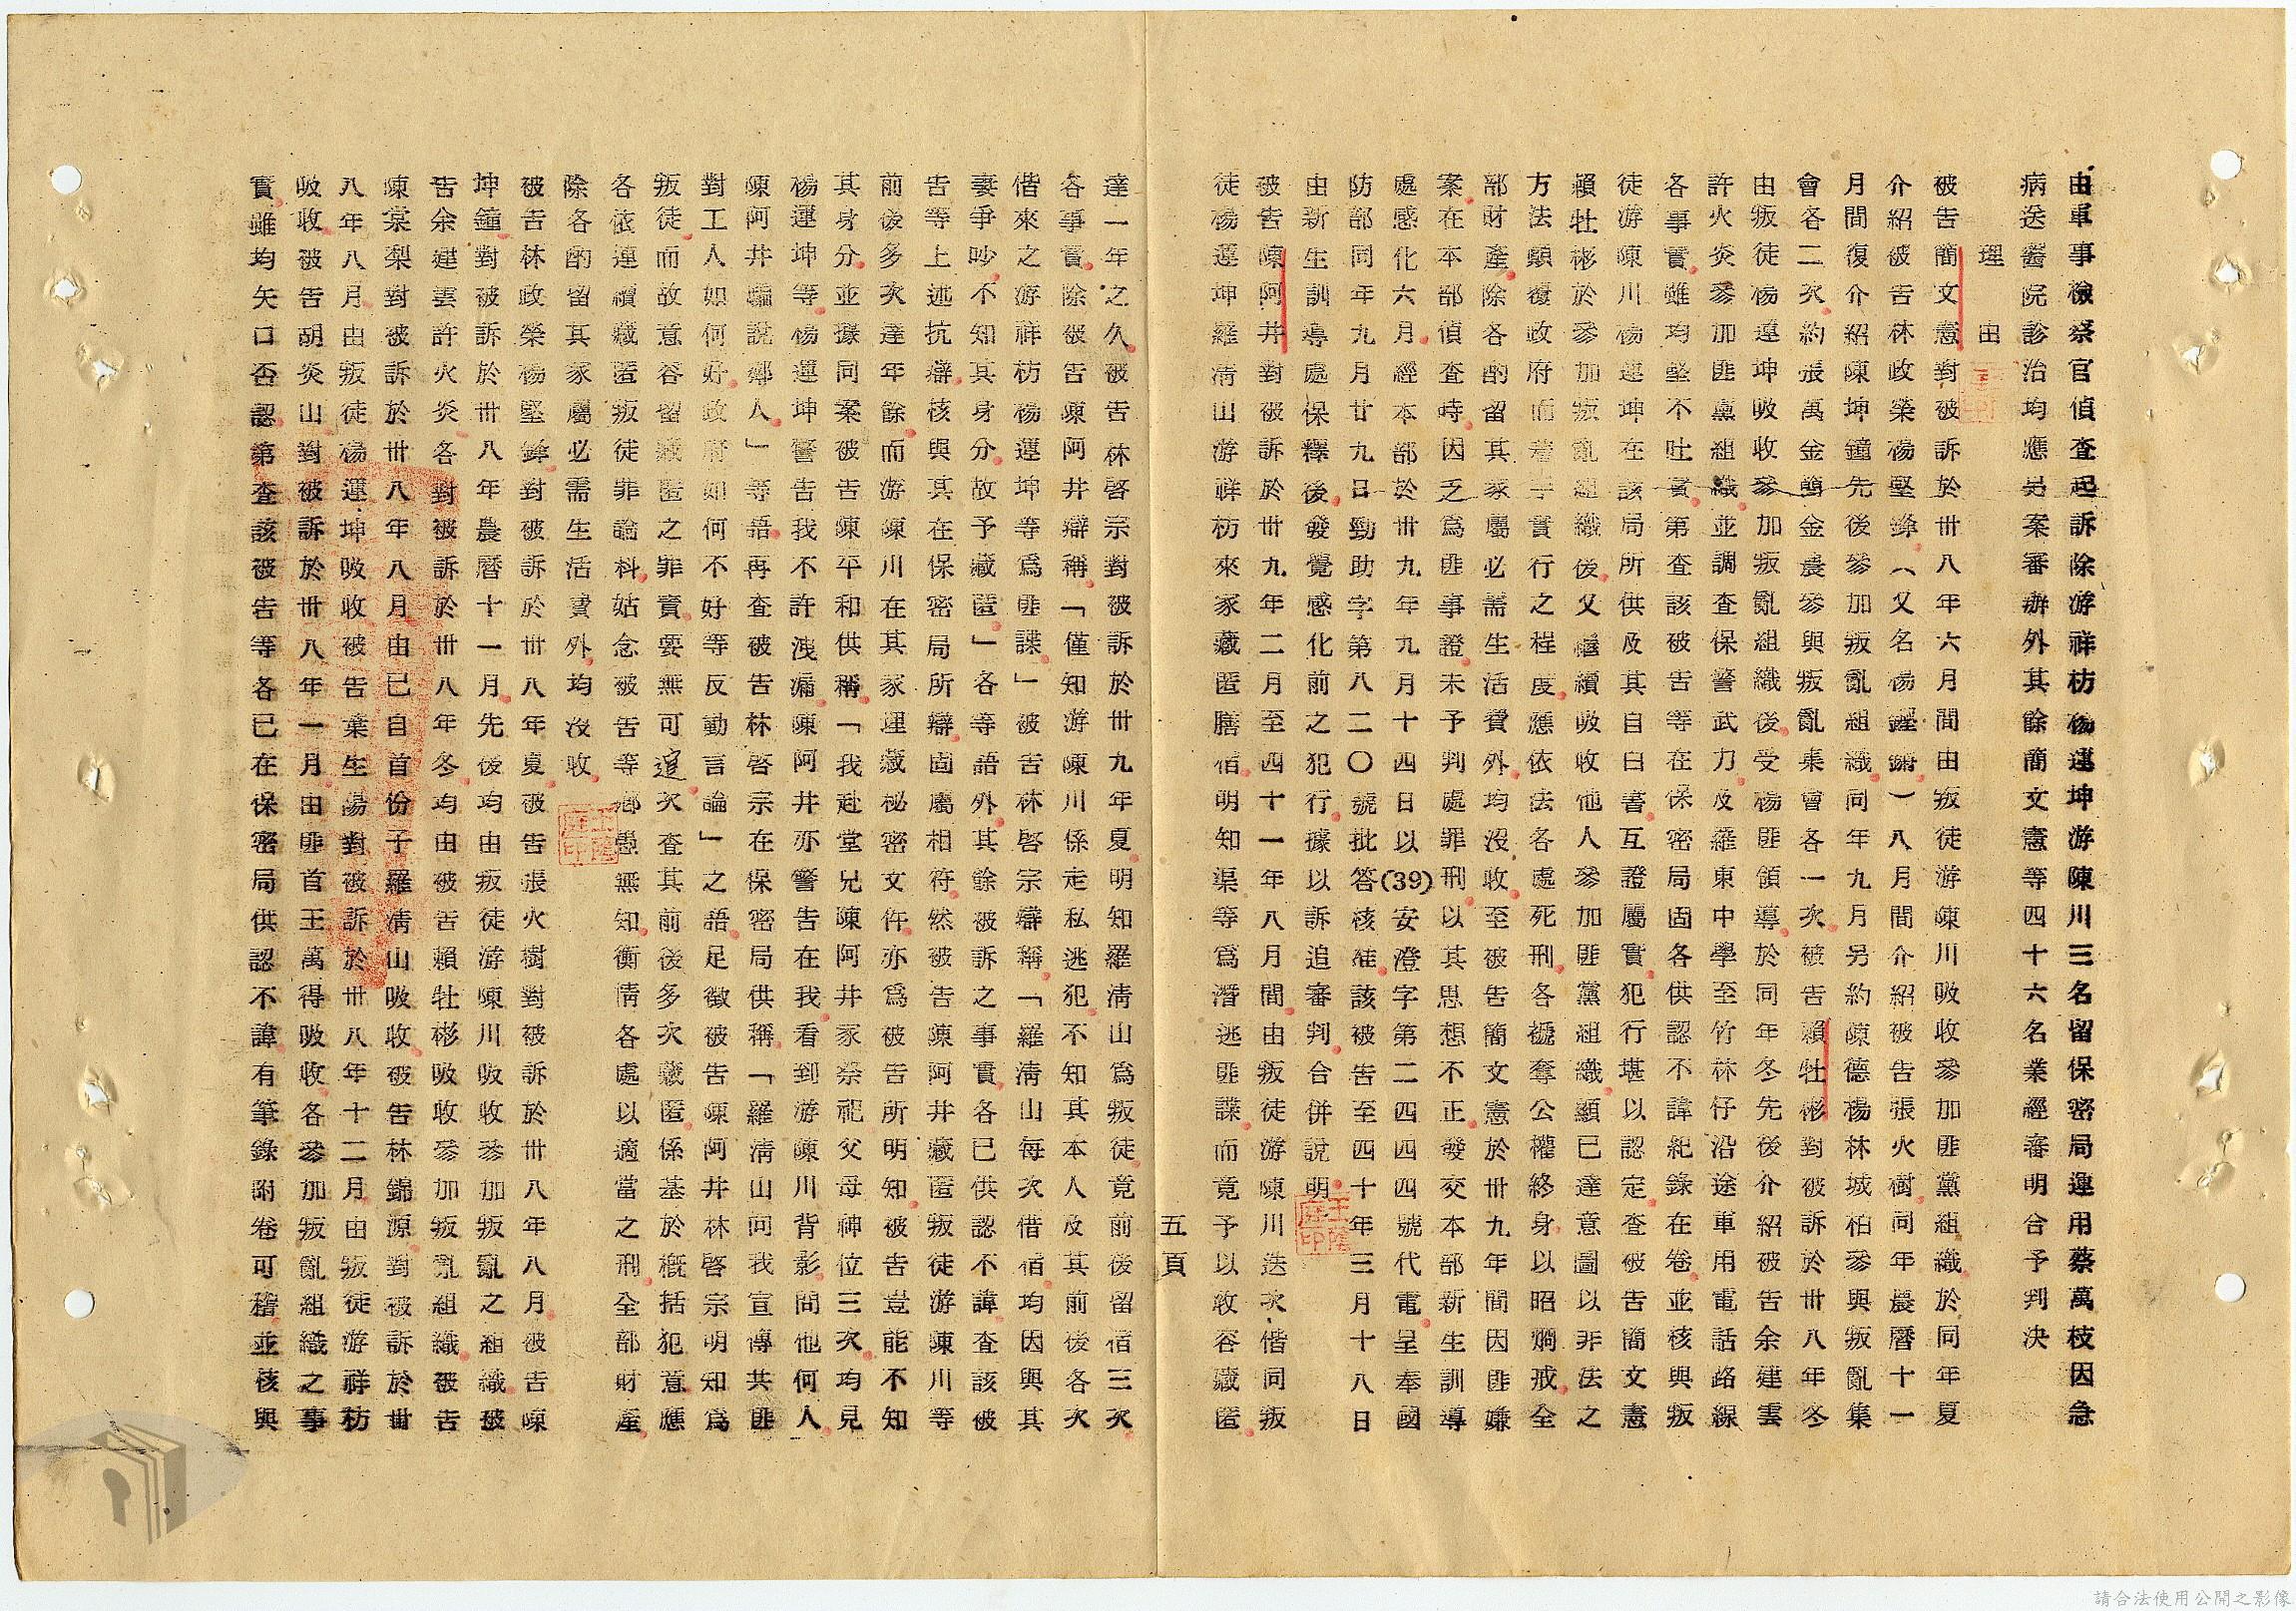 由軍事檢察官偵查起訴除游祥枋楊運坤游陳川三名留保密局運用蔡萬枝因急
病送醫院診治均應另案審辦外其餘簡文憲等四十六名業經審明合予判決
理由
被告簡文憲對被訴於卅八年六月間由叛徒游陳川吸收參加匪黨組織於同年夏
介紹被告林政榮楊堅鋒（又名楊）八月間介紹被告張火樹同年農曆十一
月間復介紹陳坤鐘先後參加叛亂組織同年九月另約陳德楊林城柏參與叛亂集
會各二次約張萬金簡金農參與叛亂集會各一次被告賴牡彬對被訴於卅八年冬
由叛徒楊運坤吸收參加叛亂組織後受楊匪領導於同年冬先後介紹被告余建雲
許火炎參加匪黨組織並調查保警武力及羅東中學至竹林仔沿途車用電話路線
各事實雖均堅不吐實第查該被告等在保密局固各供認不諱紀錄在卷並核與叛
徒游陳川楊運坤在該局所供及其自白書互證屬實犯行堪以認定查被告簡文憲
賴牡彬於參加叛亂組織後又繼續吸收他人參加匪黨組織顯已達意圖以非法之
方法顛覆政府而著手實行之程度應依法各處死刑各褫奪公權終身以昭烱戒全
部財產除各酌留其家屬必需生活費外均沒收至被告簡文憲於卅九年間因匪嫌
案在本部偵查時因乏為匪事證未予判處罪刑以其思想不正發交本部新生訓導
處感化六月經本部於卅九年九月十四日以(39)安澄字第二四四四號代電呈奉國
防部同年九月廿九日勁助字第八二〇號批答核准該被告至四十年三月十八日
由新生訓導處保釋後發覺感化前之犯行據以訴追審判合併說明
被告陳阿井對被訴於卅九年二月至四十一年八月間由叛徒游陳川迭次偕同叛
徒楊運坤羅清山游祥枋來家藏匿膳宿明知渠等為潛逃匪諜而竟予以收容藏匿
五頁
達一年之久被告林啓宗對被訴於卅九年夏明知羅清山為叛徒竟前後留宿三次
各事實除被告陳阿井辯稱「僅知游陳川係走私逃犯不知其本人及其前後各次
偕來之游祥枋楊運坤等為匪諜」被告林啓宗辯稱「羅清山每次借宿均因與其
妻爭吵不知其身分故予藏匿」各等語外其餘被訴之事實各已供認不諱查該被
告等上述抗辯核與其在保密局所辯固屬相符然被告陳阿井藏匿叛徒游陳川等
前後多次達年餘而游陳川在其家埋藏秘密文件亦為被告所明知被告豈能不知
其身分並據同案被告陳平和供稱「我赴堂兄陳阿井家祭祀父母神位三次均見
楊運坤等楊運坤警告我不許洩漏陳阿井亦警告在我看到游陳川背影問他何人
陳阿井騙說鄰人」等語再查被告林啓宗在保密局供稱「羅清山向我宣傳共匪
對工人如何好政府如何不好等反動言論」之語足徵被告陳阿井林啓宗明知為
叛徒而故意容留藏匿之罪實要無可追次查其前後多次藏匿係基於概括犯意應
各依連續藏匿叛徒罪論科姑念被告等鄉愚無知衡情各處以適當之刑全部財產
除各酌留其家屬必需生活費外均沒收
被告林政榮楊堅鋒對被訴於卅八年夏被告張火樹對被訴於卅八年八月被告陳
坤鐘對被訴於卅八年農曆十一月先後均由叛徒游陳川吸收參加叛亂之組織被
告余建雲許火炎各對被訴於卅八年冬均由被告賴牡彬吸收參加叛亂組織被告
陳棠梨對被訴於卅八年八月由已自首份子羅清山吸收被告林錦源對被訴於卅
八年八月由叛徒楊運坤吸收被告葉生暘對被訴於卅八年十二月由叛徒游祥枋
吸收被告胡炎山對被訴於卅八年一月由匪首王萬得吸收各參加叛亂組織之事
實雖均矢口否認第查該被告等各已在保密局供認不諱有筆錄附卷可稽並核與
請合法使用公開之影像